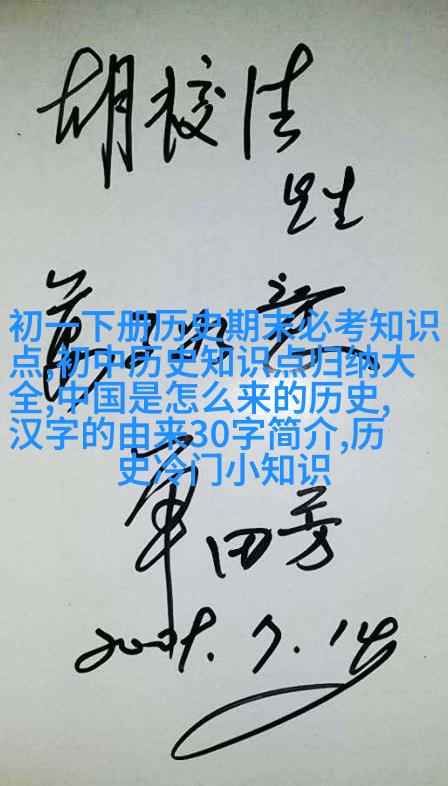 胡
先生
初一下册历史期末必考知识
点,初中历史知识点归纳大
全,中国是怎么来的历史,
汉字的由来30字简介,历
史冷门小知识
单田芳